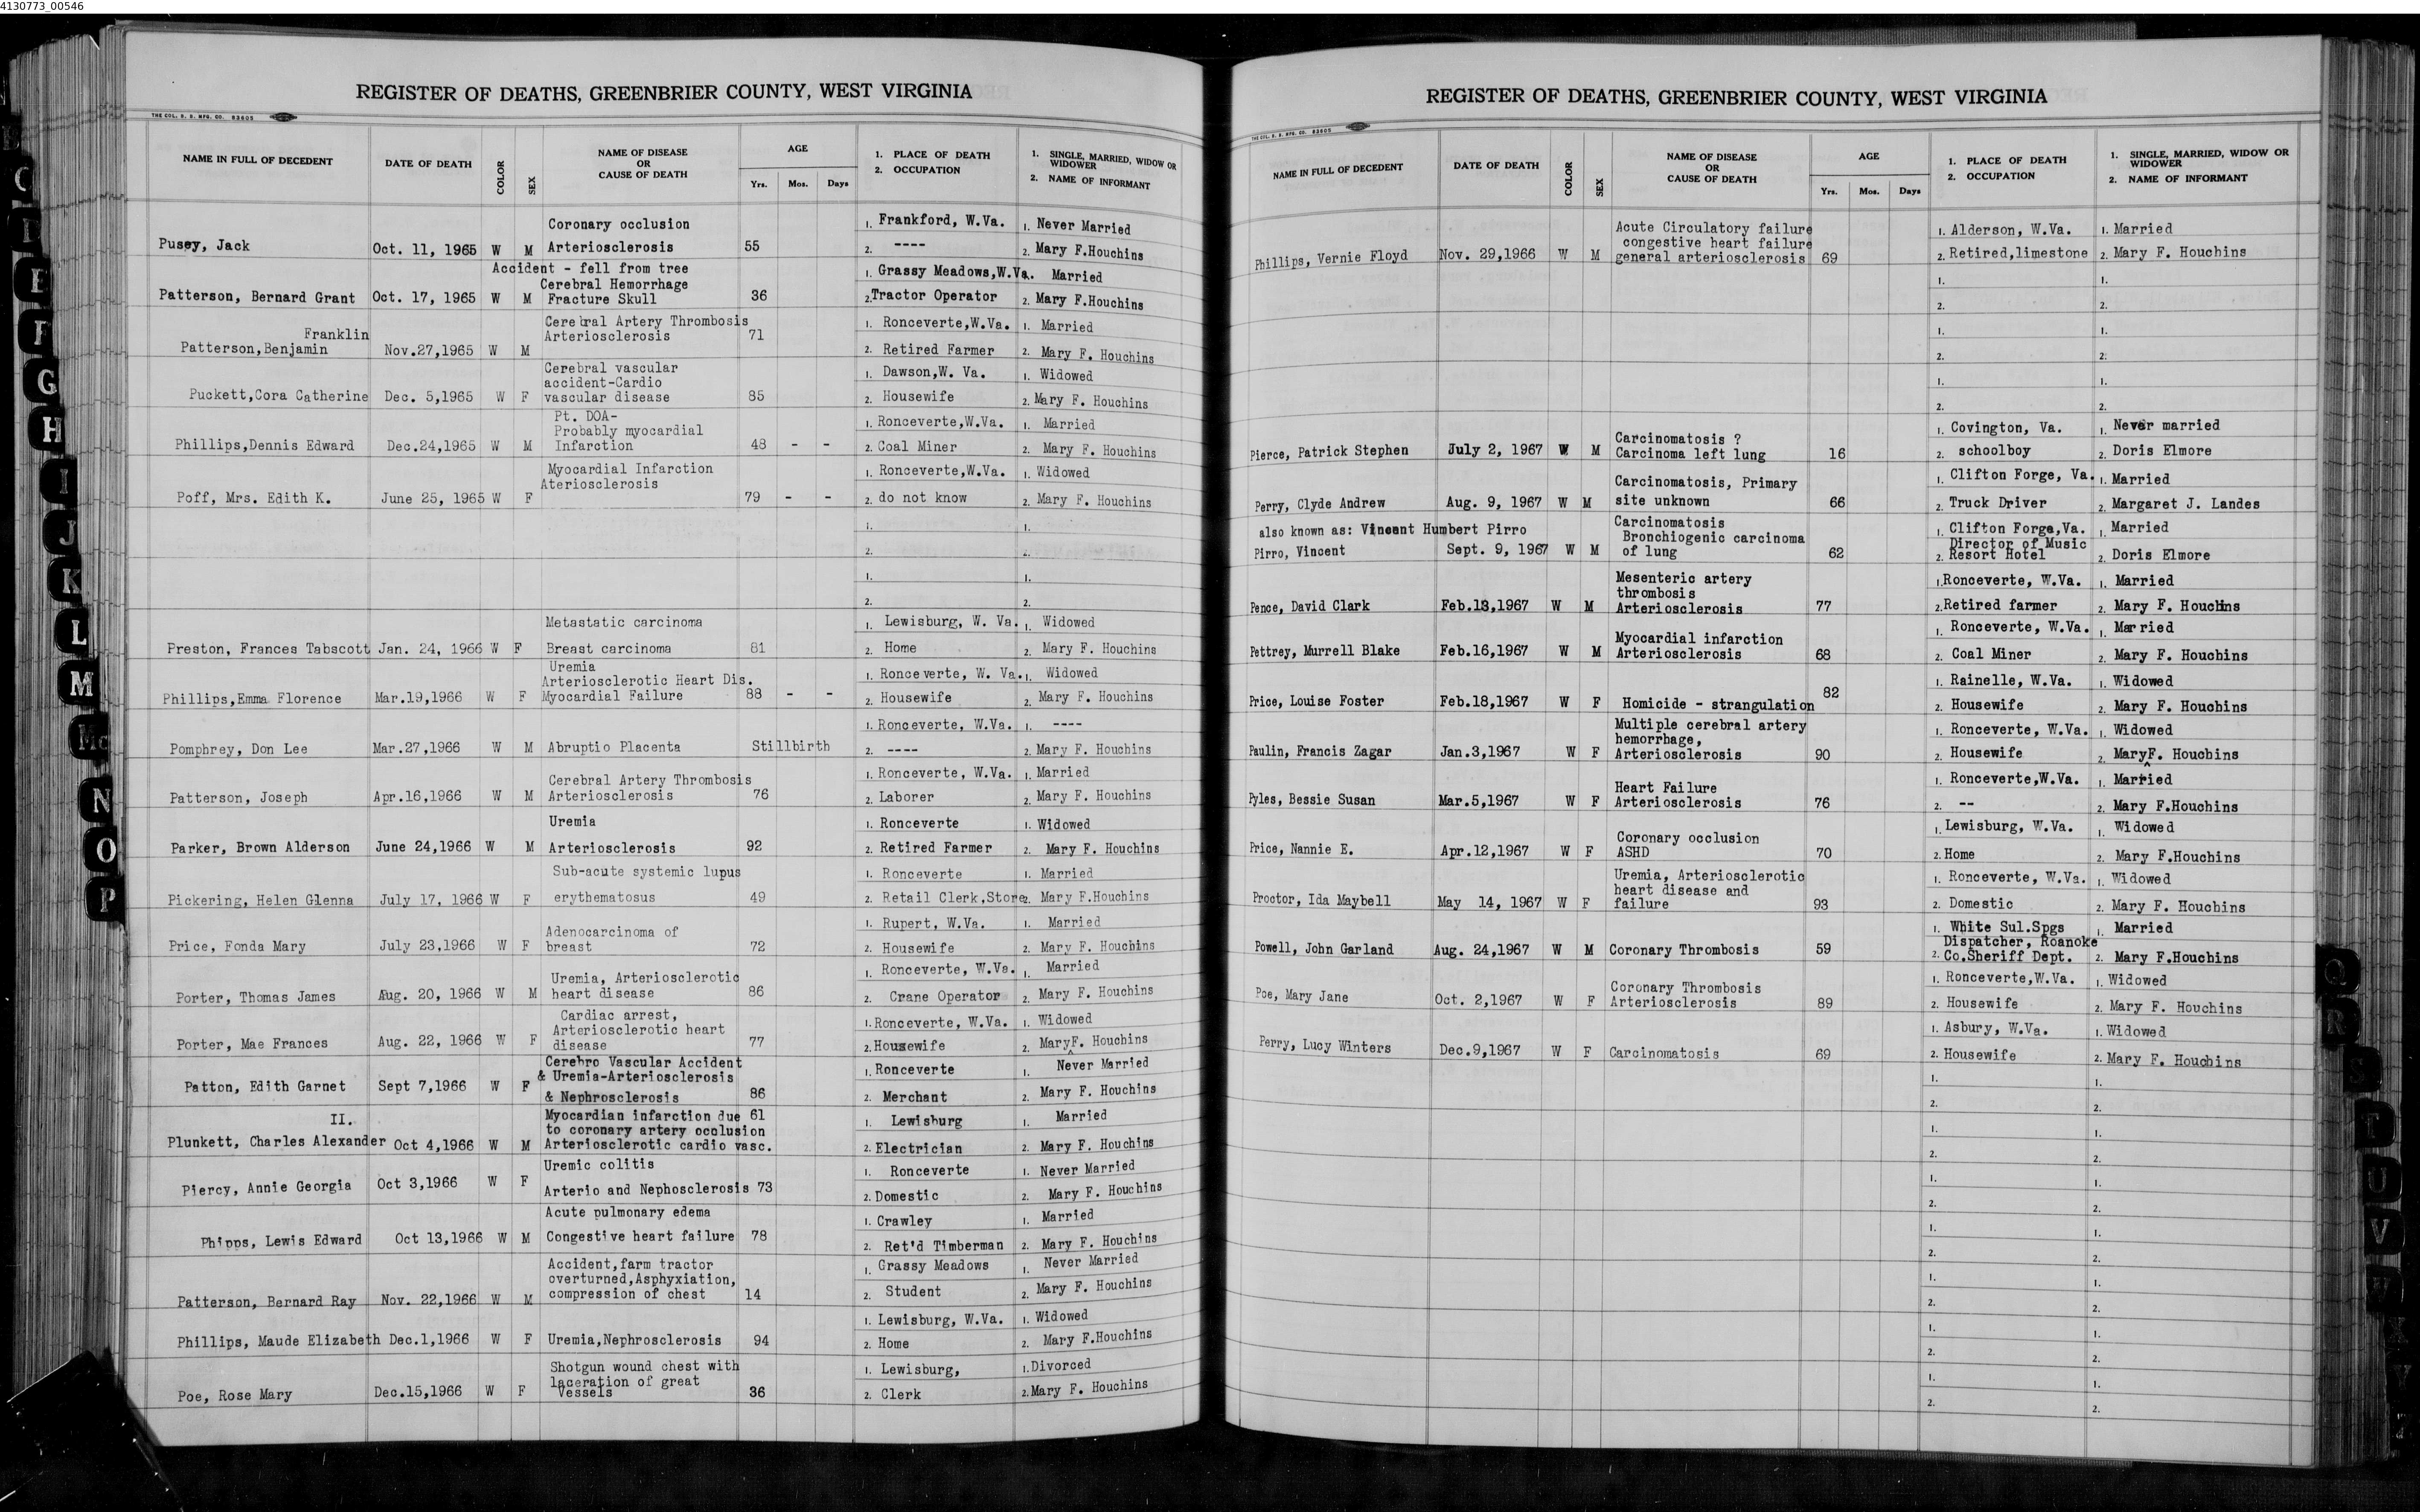 4130773_00546
REGISTER OF DEATHS, GREENBRIER COUNTY, WEST VIRGINIA
THE COL. B. B. MFG. CO. 83605
NAME IN FULL OF DECEDENT DATE OF DEATH COLOR SEX NAME OF DISEASE OR CAUSE OF DEATH AGE Yrs. Mos. Days 1. PLACE OF DEATH 2. OCCUPATION 1. SINGLE, MARRIED, WIDOW OR WIDOWER 2. NAME OF INFORMANT
Coronary occlusion 1. Frankford, W.Va. 1. Never Married
Pusey, Jack Oct. 11, 1965 W M Arteriosclerosis 55 2. ---- 2. Mary F.Houchins
Accident - fell from tree 1. Grassy Meadows,W.Va. Married
Cerebral Hemorrhage
Patterson, Bernard Grant Oct. 17, 1965 W M Fracture Skull 36 2.Tractor Operator 2. Mary F.Houchins
Cerebral Artery Thrombosis 1. Ronceverte,W.Va. 1. Married
Franklin Arteriosclerosis 71
Patterson,Benjamin Nov.27,1965 W M 2. Retired Farmer 2. Mary F. Houchins
Cerebral vascular 1. Dawson,W. Va. 1. Widowed
accident-Cardio
Puckett,Cora Catherine Dec. 5,1965 W F vascular disease 85 2. Housewife 2. Mary F. Houchins
Pt. DOA- 1. Ronceverte,W.Va. 1. Married
Probably myocardial
Phillips,Dennis Edward Dec.24,1965 W M Infarction 48 - - 2. Coal Miner 2. Mary F. Houchins
Myocardial Infarction 1. Ronceverte,W.Va. 1. Widowed
Ateriosclerosis
Poff, Mrs. Edith K. June 25, 1965 W F 79 - - 2. do not know 2. Mary F. Houchins
1. 1.
2. 2.
1. 1.
2. 2.
Metastatic carcinoma 1. Lewisburg, W. Va. 1. Widowed
Preston, Frances Tabscott Jan. 24, 1966 W F Breast carcinoma 81 2. Home 2. Mary F. Houchins
Uremia 1. Ronceverte, W. Va. 1. Widowed
Arteriosclerotic Heart Dis.
Phillips,Emma Florence Mar.19,1966 W F Myocardial Failure 88 - - 2. Housewife 2. Mary F. Houchins
1. Ronceverte, W.Va. 1. ----
Pomphrey, Don Lee Mar.27,1966 W M Abruptio Placenta Stillbirth 2. ---- 2. Mary F. Houchins
Cerebral Artery Thrombosis 1. Ronceverte, W.Va. 1. Married
Patterson, Joseph Apr.16,1966 W M Arteriosclerosis 76 2. Laborer 2. Mary F. Houchins
Uremia 1. Ronceverte 1. Widowed
Parker, Brown Alderson June 24,1966 W M Arteriosclerosis 92 2. Retired Farmer 2. Mary F. Houchins
Sub-acute systemic lupus 1. Ronceverte 1. Married
Pickering, Helen Glenna July 17, 1966 W F erythematosus 49 2. Retail Clerk,Store 2. Mary F.Houchins
Adenocarcinoma of 1. Rupert, W.Va. 1. Married
Price, Fonda Mary July 23,1966 W F breast 72 2. Housewife 2. Mary F. Houchins
Uremia, Arteriosclerotic 1. Ronceverte, W.Va. 1. Married
Porter, Thomas James Aug. 20, 1966 W M heart disease 86 2. Crane Operator 2. Mary F. Houchins
Cardiac arrest, 1. Ronceverte, W.Va. 1. Widowed
Arteriosclerotic heart
Porter, Mae Frances Aug. 22, 1966 W F disease 77 2. Housewife 2. MaryF. Houchins
Cerebro Vascular Accident 1. Ronceverte 1. Never Married
& Uremia-Arteriosclerosis
Patton, Edith Garnet Sept 7,1966 W F & Nephrosclerosis 86 2. Merchant 2. Mary F. Houchins
II. Myocardian infarction due 61 1. Lewisburg 1. Married
to coronary artery occlusion
Plunkett, Charles Alexander Oct 4,1966 W M Arteriosclerotic cardio vasc. 2. Electrician 2. Mary F. Houchins
Uremic colitis 1. Ronceverte 1. Never Married
Piercy, Annie Georgia Oct 3,1966 W F Arterio and Nephosclerosis 73 2. Domestic 2. Mary F. Houchins
Acute pulmonary edema 1. Crawley 1. Married
Phipps, Lewis Edward Oct 13,1966 W M Congestive heart failure 78 2. Ret'd Timberman 2. Mary F. Houchins
Accident,farm tractor 1. Grassy Meadows 1. Never Married
overturned,Asphyxiation,
Patterson, Bernard Ray Nov. 22,1966 W M compression of chest 14 2. Student 2. Mary F. Houchins
1. Lewisburg, W.Va. 1. Widowed
Phillips, Maude Elizabeth Dec.1,1966 W F Uremia,Nephrosclerosis 94 2. Home 2. Mary F.Houchins
Shotgun wound chest with 1. Lewisburg, 1.Divorced
laceration of great
Poe, Rose Mary Dec.15,1966 W F Vessels 36 2. Clerk 2.Mary F. Houchins
REGISTER OF DEATHS, GREENBRIER COUNTY, WEST VIRGINIA
THE COL. B. B. MFG. CO. 83605
NAME IN FULL OF DECEDENT DATE OF DEATH COLOR SEX NAME OF DISEASE OR CAUSE OF DEATH AGE Yrs. Mos. Days 1. PLACE OF DEATH 2. OCCUPATION 1. SINGLE, MARRIED, WIDOW OR WIDOWER 2. NAME OF INFORMANT
Acute Circulatory failure 1. Alderson, W.Va. 1. Married
congestive heart failure
Phillips, Vernie Floyd Nov. 29,1966 W M general arteriosclerosis 69 2. Retired,limestone 2. Mary F. Houchins
1. 1.
2. 2.
1. 1.
2. 2.
1. 1.
2. 2.
Carcinomatosis ? 1. Covington, Va. 1. Never married
Pierce, Patrick Stephen July 2, 1967 W M Carcinoma left lung 16 2. schoolboy 2. Doris Elmore
Carcinomatosis, Primary 1. Clifton Forge, Va. 1. Married
Perry, Clyde Andrew Aug. 9, 1967 W M site unknown 66 2. Truck Driver 2. Margaret J. Landes
also known as: Vincent Humbert Pirro Carcinomatosis 1. Clifton Forge,Va. 1. Married
Bronchiogenic carcinoma Director of Music
Pirro, Vincent Sept. 9, 1967 W M of lung 62 2. Resort Hotel 2. Doris Elmore
Mesenteric artery 1.Ronceverte, W.Va. 1. Married
thrombosis
Pence, David Clark Feb.13,1967 W M Arteriosclerosis 77 2.Retired farmer 2. Mary F. Houchins
Myocardial infarction 1. Ronceverte, W.Va. 1. Married
Pettrey, Murrell Blake Feb.16,1967 W M Arteriosclerosis 68 2. Coal Miner 2. Mary F. Houchins
1. Rainelle, W.Va. 1. Widowed
Price, Louise Foster Feb.18,1967 W F Homicide - strangulation 82 2. Housewife 2. Mary F. Houchins
Multiple cerebral artery 1. Ronceverte, W.Va. 1. Widowed
hemorrhage,
Paulin, Francis Zagar Jan.3,1967 W F Arteriosclerosis 90 2. Housewife 2. MaryF. Houchins
Heart Failure 1. Ronceverte,W.Va. 1. Married
Pyles, Bessie Susan Mar.5,1967 W F Arteriosclerosis 76 2. -- 2. Mary F.Houchins
Coronary occlusion 1. Lewisburg, W.Va. 1. Widowed
Price, Nannie E. Apr.12,1967 W F ASHD 70 2. Home 2. Mary F.Houchins
Uremia, Arteriosclerotic 1. Ronceverte, W.Va. 1. Widowed
heart disease and
Proctor, Ida Maybell May 14, 1967 W F failure 93 2. Domestic 2. Mary F. Houchins
1. White Sul.Spgs 1. Married
Dispatcher, Roanoke
Powell, John Garland Aug. 24,1967 W M Coronary Thrombosis 59 2. Co.Sheriff Dept. 2. Mary F.Houchins
Coronary Thrombosis 1. Ronceverte,W.Va. 1. Widowed
Poe, Mary Jane Oct. 2,1967 W F Arteriosclerosis 89 2. Housewife 2. Mary F. Houchins
1. Asbury, W.Va. 1. Widowed
Perry, Lucy Winters Dec.9,1967 W F Carcinomatosis 69 2. Housewife 2. Mary F. Houchins
1. 1.
2. 2.
1. 1.
2. 2.
1. 1.
2. 2.
1. 1.
2. 2.
1. 1.
2. 2.
1. 1.
2. 2.
1. 1.
2. 2.
C
E
F
G
H
I
J
K
L
M
Mc
N
O
P
Q
R
S
T
U
V
W